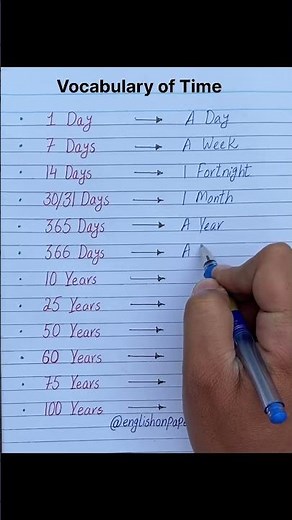 Vocabulary of Time
1 Day → A Day
7 Days → A Week
14 Days → 1 Fortnight
30/31 Days → 1 Month
365 Days → A Year
366 Days → A
10 Years →
25 Years →
50 Years →
60 Years →
75 Years →
100 Years →
@englishonpape